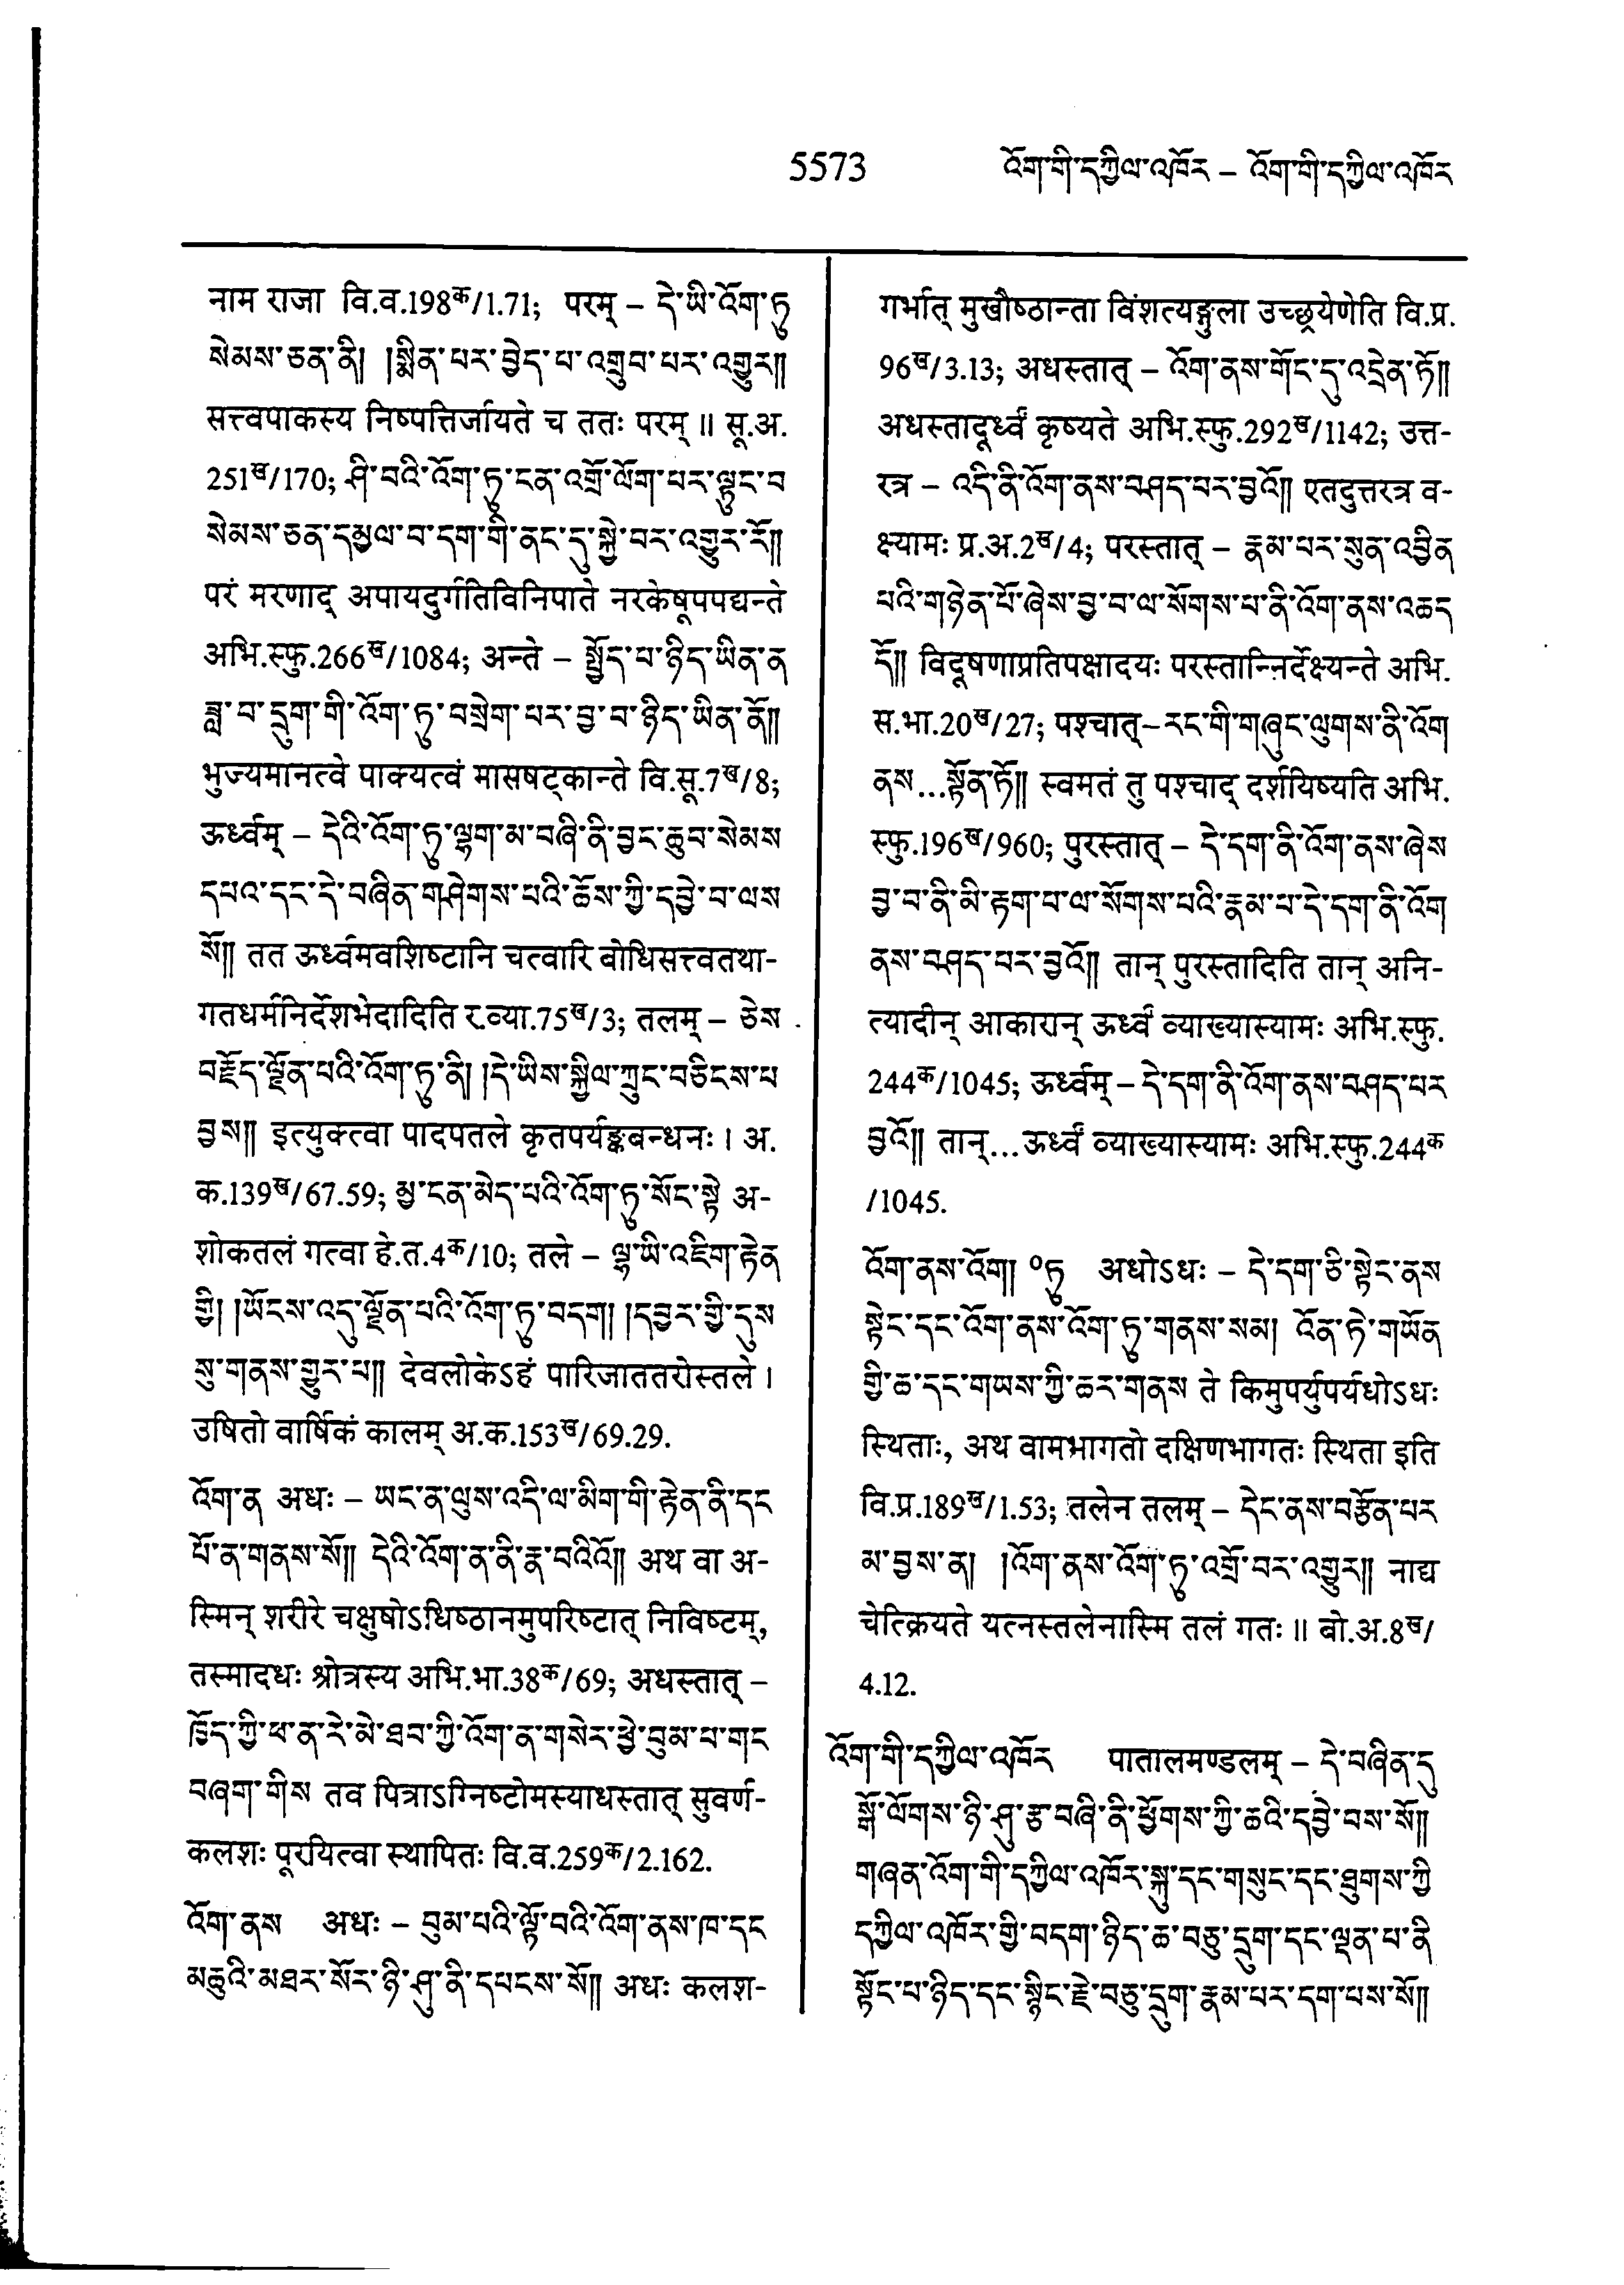 5573 འོག་གི་དཀྱིལ་འཁོར – འོག་གི་དཀྱིལ་འཁོར
नाम राजा वि.व.198क/1.71; परम् – དེ་ཡི་འོག་ཏུ
སེམས་ཅན་ནི། །སྨིན་པར་བྱེད་པ་འགྲུབ་པར་འགྱུར༎
सत्त्वपाकस्य निष्पत्तिर्जायते च ततः परम् ॥ सू.अ.
251ख/170; ཤི་བའི་འོག་ཏུ་ངན་འགྲོ་ལོག་པར་ལྟུང་བ
སེམས་ཅན་དམྱལ་བ་དག་གི་ནང་དུ་སྐྱེ་བར་འགྱུར་རོ༎
परं मरणाद् अपायदुर्गतिविनिपाते नरकेषूपपद्यन्ते
अभि.स्फु.266ख/1084; अन्ते – སྤྱོད་པ་ཉིད་ཡིན་ན
ཟླ་བ་དྲུག་གི་འོག་ཏུ་བསྲེག་པར་བྱ་བ་ཉིད་ཡིན་ནོ༎
भुज्यमानत्वे पाक्यत्वं मासषट्कान्ते वि.सू.7ख/8;
ऊर्ध्वम् – དེའི་འོག་ཏུ་ལྷག་མ་བཞི་ནི་བྱང་ཆུབ་སེམས
དཔའ་དང་དེ་བཞིན་གཤེགས་པའི་ཆོས་ཀྱི་དབྱེ་བ་ལས
སོ༎ तत ऊर्ध्वमवशिष्टानि चत्वारि बोधिसत्त्वतथा-
गतधर्मनिर्देशभेदादिति र.व्या.75ख/3; तलम् – ཅེས
བརྗོད་ལྗོན་པའི་འོག་ཏུ་ནི། །དེ་ཡིས་སྐྱིལ་ཀྲུང་བཅིངས་པ
བྱས༎ इत्युक्त्वा पादपतले कृतपर्यङ्कबन्धनः । अ.
क.139ख/67.59; མྱ་ངན་མེད་པའི་འོག་ཏུ་སོང་སྟེ अ-
शोकतलं गत्वा हे.त.4क/10; तले – ལྷ་ཡི་འཇིག་རྟེན
གྱི། །ཡོངས་འདུ་ལྗོན་པའི་འོག་ཏུ་བདག། །དབྱར་གྱི་དུས
སུ་གནས་གྱུར་པ༎ देवलोकेऽहं पारिजाततरोस्तले ।
उषितो वार्षिकं कालम् अ.क.153ख/69.29.
འོག་ན अधः – ཡང་ན་ལུས་འདི་ལ་མིག་གི་རྟེན་ནི་དང
པོ་ན་གནས་སོ༎ དེའི་འོག་ན་ནི་རྣ་བའིའོ༎ अथ वा अ-
स्मिन् शरीरे चक्षुषोऽधिष्ठानमुपरिष्टात् निविष्टम्,
तस्मादधः श्रोत्रस्य अभि.भा.38क/69; अधस्तात् –
ཁྱོད་ཀྱི་ཕ་ན་རེ་མེ་ཐབ་ཀྱི་འོག་ན་གསེར་ཕྱེ་བུམ་པ་གང
བཞག་གིས तव पित्राऽग्निष्टोमस्याधस्तात् सुवर्ण-
कलशः पूरयित्वा स्थापितः वि.व.259क/2.162.
འོག་ནས अधः – བུམ་པའི་ལྟོ་བའི་འོག་ནས་ཁ་དང
མཆུའི་མཐར་སོར་ཉི་ཤུ་ནི་དཔངས་སོ༎ अधः कलश-
गर्भात् मुखौष्ठान्ता विंशत्यङ्गुला उच्छ्रयेणेति वि.प्र.
96ख/3.13; अधस्तात् – འོག་ནས་གོང་དུ་འདྲེན་ཏོ༎
अधस्तादूर्ध्वं कृष्यते अभि.स्फु.292ख/1142; उत्त-
रत्र – འདི་ནི་འོག་ནས་བཤད་པར་བྱའོ༎ एतदुत्तरत्र व-
क्ष्यामः प्र.अ.2ख/4; परस्तात् – རྣམ་པར་སུན་འབྱིན
པའི་གཉེན་པོ་ཞེས་བྱ་བ་ལ་སོགས་པ་ནི་འོག་ནས་འཆད
དོ༎ विदूषणाप्रतिपक्षादयः परस्तान्निर्देक्ष्यन्ते अभि.
स.भा.20ख/27; पश्चात्–རང་གི་གཞུང་ལུགས་ནི་འོག
ནས...སྟོན་ཏོ༎ स्वमतं तु पश्चाद् दर्शयिष्यति अभि.
स्फु.196ख/960; पुरस्तात् – དེ་དག་ནི་འོག་ནས་ཞེས
བྱ་བ་ནི་མི་རྟག་པ་ལ་སོགས་པའི་རྣམ་པ་དེ་དག་ནི་འོག
ནས་བཤད་པར་བྱའོ༎ तान् पुरस्तादिति तान् अनि-
त्यादीन् आकारान् ऊर्ध्वं व्याख्यास्यामः अभि.स्फु.
244क/1045; ऊर्ध्वम् – དེ་དག་ནི་འོག་ནས་བཤད་པར
བྱའོ༎ तान्...ऊर्ध्वं व्याख्यास्यामः अभि.स्फु.244क
/1045.
འོག་ནས་འོག། ०ཏུ अधोऽधः – དེ་དག་ཅི་སྟེང་ནས
སྟེང་དང་འོག་ནས་འོག་ཏུ་གནས་སམ། འོན་ཏེ་གཡོན
གྱི་ཆ་དང་གཡས་ཀྱི་ཆར་གནས ते किमुपर्युपर्यधोऽधः
स्थिताः, अथ वामभागतो दक्षिणभागतः स्थिता इति
वि.प्र.189ख/1.53; तलेन तलम् – དེང་ནས་བརྩོན་པར
མ་བྱས་ན། །འོག་ནས་འོག་ཏུ་འགྲོ་བར་འགྱུར༎ नाद्य
चेत्क्रियते यत्नस्तलेनास्मि तलं गतः ॥ बो.अ.8ख/
4.12.
འོག་གི་དཀྱིལ་འཁོར पातालमण्डलम् – དེ་བཞིན་དུ
སྒོ་ལོགས་ཉི་ཤུ་རྩ་བཞི་ནི་ཕྱོགས་ཀྱི་ཆའི་དབྱེ་བས་སོ༎
གཞན་འོག་གི་དཀྱིལ་འཁོར་སྐུ་དང་གསུང་དང་ཐུགས་ཀྱི
དཀྱིལ་འཁོར་གྱི་བདག་ཉིད་ཆ་བཅུ་དྲུག་དང་ལྡན་པ་ནི
སྟོང་པ་ཉིད་དང་སྙིང་རྗེ་བཅུ་དྲུག་རྣམ་པར་དག་པས་སོ༎